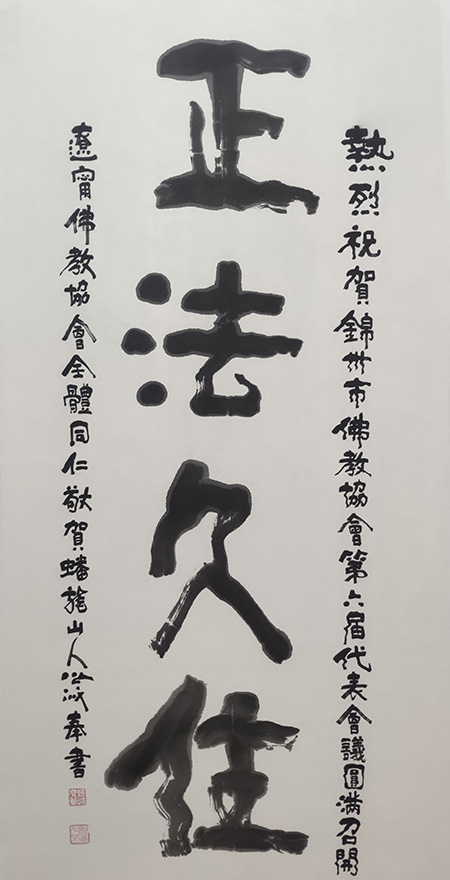 熱烈祝賀錦州市佛教協會第六届代表會議圓滿召開
正法久住
遼甯佛教協會全體同仁敬賀蟠龍山人奉書